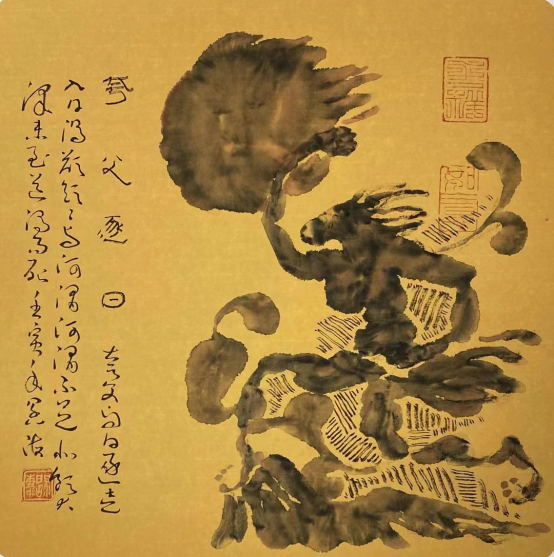 夸父逐日 夸父与日逐走
入日渴欲饮々于河渭河渭不足北饮大
泽未至道渴而死壬寅年